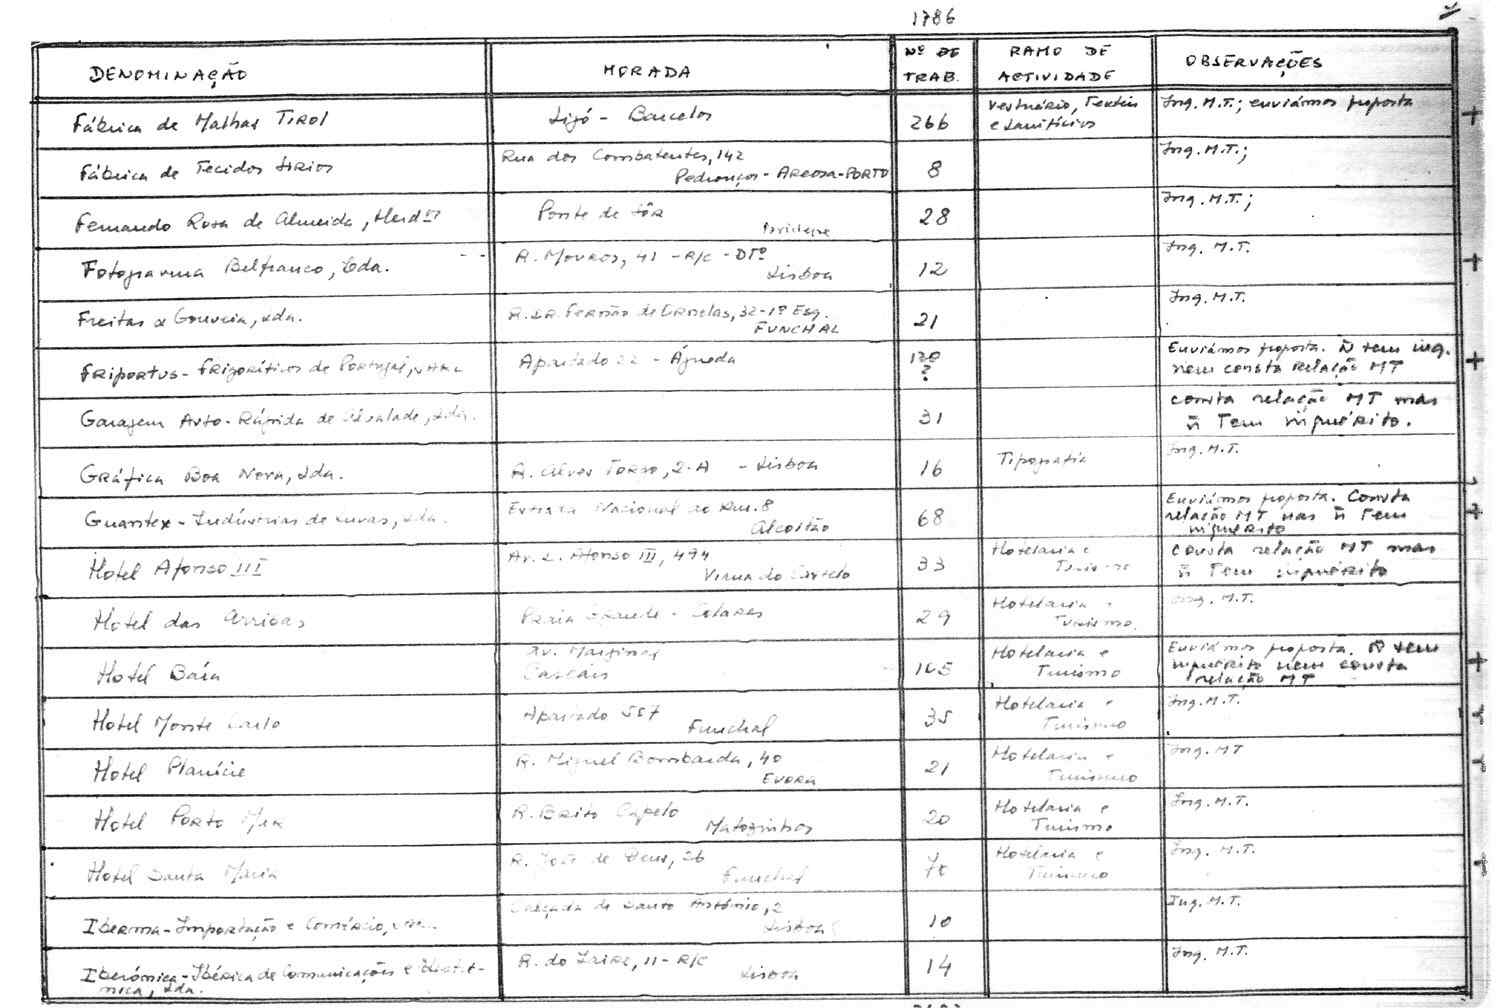 1786
DENOMINAÇÃO MORADA Nº DE TRAB. RAMO DE ACTIVIDADE OBSERVAÇÕES
Fábrica de Malhas Tirol Lijó - Barcelos 266 Vestuário, Texteis e Lanifícios Inq. M.T.; enviámos proposta
Fábrica de Tecidos Lírios Rua dos Combatentes, 142 Pedrouços - AREOSA-PORTO 8 Inq. M.T.;
Fernando Rosa de Almeida, Herdºs Ponte de Sôr 28 Inq. M.T.;
Fotogravura Belfranco, Lda. R. MOUROS, 41 - R/C - DTº Lisboa 12 Inq. M.T.
Freitas & Gouveia, Lda. Fernão de Ornelas, 32-1º Esq. FUNCHAL 21 Inq. M.T.
FRIPORTUS - Frigoríficos de Portugal, Apartado - Águeda 120 ? Enviámos proposta. Ñ tem inq. nem consta relação MT
Garagem Auto-Rápida de Alvalade, Lda. 31 consta relação MT mas ñ tem inquérito.
GRáfica Boa Nova, Lda. R. Alves Torgo, 2-A - Lisboa 16 Tipografia Inq. M.T.
Guantex - Indústrias de Luvas, Lda. Estrada Nacional ao Km. 8 Alcoitão 68 Enviámos proposta. Consta relação MT mas ñ tem inquérito
Hotel Afonso III Av. D. Afonso III, 494 Viana do Castelo 33 Hotelaria e Turismo consta relação MT mas ñ tem inquérito
Hotel das Arribas Praia Grande - Colares 29 Hotelaria e Turismo. Inq. M.T.
Hotel Baía Av. Marginal Cascais 105 Hotelaria e Turismo Enviámos proposta. Ñ tem inquérito nem consta relação MT
Hotel Monte Carlo Apartado 557 Funchal 35 Hotelaria e Turismo Inq. M.T.
Hotel Planície R. Miguel Bombarda, 40 EVORA 21 Hotelaria e Turismo Inq. MT
Hotel PORTO Mar R. BRITO Capelo Matozinhos 20 Hotelaria e Turismo Inq. M.T.
Hotel Santa Maria R. João de Deus, 26 Funchal 70 Hotelaria e Turismo Inq. M.T.
IBERMA - Importação e Comércio, Calçada de Santo António, 2 Lisboa 10 Inq. M.T.
Iberómica - Ibérica de Comunicações e nica, Lda. R. do Zaire, 11 - R/C Lisboa 14 Inq. M.T.